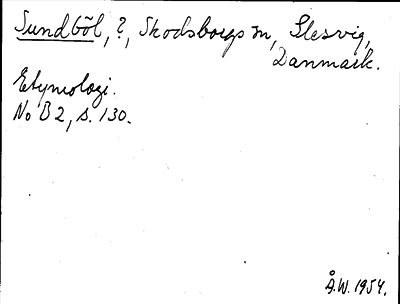 Sundböl, ?, Skodsborgs sn, Slesvig,
Danmark.
Etymologi.
No B 2, s. 130.
Å.W. 1954.